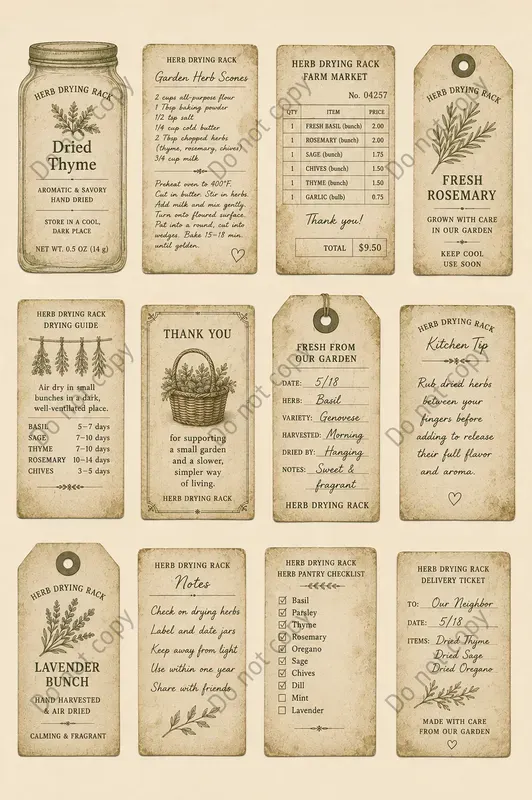 HERB DRYING RACK
Dried
Thyme
AROMATIC & SAVORY
HAND DRIED
STORE IN A COOL,
DARK PLACE
NET WT. 0.5 OZ (14 g)
HERB DRYING RACK
Garden Herb Scones
2 cups all-purpose flour
1 Tbsp baking powder
1/2 tsp salt
1/4 cup cold butter
2 Tbsp chopped herbs
(thyme, rosemary, chives)
3/4 cup milk
Preheat oven to 400°F.
Cut in butter. Stir in herbs.
Add milk and mix gently.
Turn onto floured surface.
Pat into a round, cut into
wedges. Bake 15-18 min.
until golden.
HERB DRYING RACK
FARM MARKET
No. 04257
QTY ITEM PRICE
1 FRESH BASIL (bunch) 2.00
1 ROSEMARY (bunch) 2.00
1 SAGE (bunch) 1.75
1 CHIVES (bunch) 1.50
1 THYME (bunch) 1.50
1 GARLIC (bulb) 0.75
Thank you!
TOTAL $9.50
HERB DRYING RACK
FRESH
ROSEMARY
GROWN WITH CARE
IN OUR GARDEN
KEEP COOL
USE SOON
HERB DRYING RACK
DRYING GUIDE
Air dry in small
bunches in a dark,
well-ventilated place.
BASIL 5–7 days
SAGE 7–10 days
THYME 7–10 days
ROSEMARY 10–14 days
CHIVES 3–5 days
THANK YOU
for supporting
a small garden
and a slower,
simpler way
of living.
HERB DRYING RACK
FRESH FROM
OUR GARDEN
DATE: 5/18
HERB: Basil
VARIETY: Genovese
HARVESTED: Morning
DRIED BY: Hanging
NOTES: Sweet &
fragrant
HERB DRYING RACK
HERB DRYING RACK
Kitchen Tip
Rub dried herbs
between your
fingers before
adding to release
their full flavor
and aroma.
HERB DRYING RACK
LAVENDER
BUNCH
HAND HARVESTED
& AIR DRIED
CALMING & FRAGRANT
HERB DRYING RACK
Notes
Check on drying herbs
Label and date jars
Keep away from light
Use within one year
Share with friends
HERB DRYING RACK
HERB PANTRY CHECKLIST
Basil
Parsley
Thyme
Rosemary
Oregano
Sage
Chives
Dill
Mint
Lavender
HERB DRYING RACK
DELIVERY TICKET
TO: Our Neighbor
DATE: 5/18
ITEMS: Dried Thyme
Dried Sage
Dried Oregano
MADE WITH CARE
FROM OUR GARDEN
Do not copy
Do not copy
Do not copy
Do not copy
Do not copy
Do not copy
Do not copy
Do not copy
Do not copy